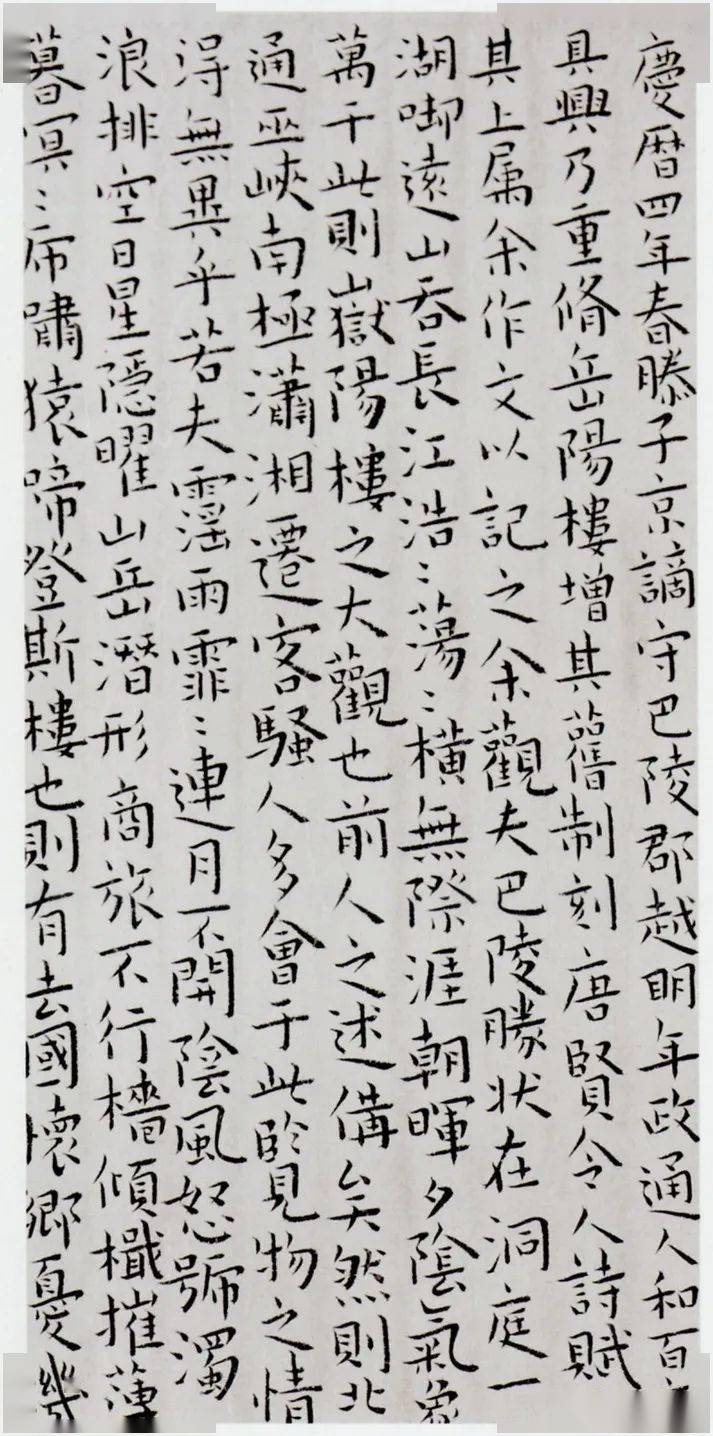 慶暦四年春滕子京謫守巴陵郡越明年政通人和百
具興乃重脩岳陽樓增其舊制刻唐賢令人詩賦
其上属余作文以記之余觀夫巴陵勝狀在洞庭一
湖啣遠山吞長江浩〻蕩〻橫無際涯朝暉夕陰氣象
萬千此則嶽陽樓之大觀也前人之述備矣然則北
通巫峽南極瀟湘遷客騷人多會于此覽物之情
得無異乎若夫霪雨霏〻連月不開陰風怒號濁
浪排空日星隱曜山岳潛形商旅不行檣傾檝摧薄
暮冥〻虎嘯猿啼登斯樓也則有去國懷鄉憂